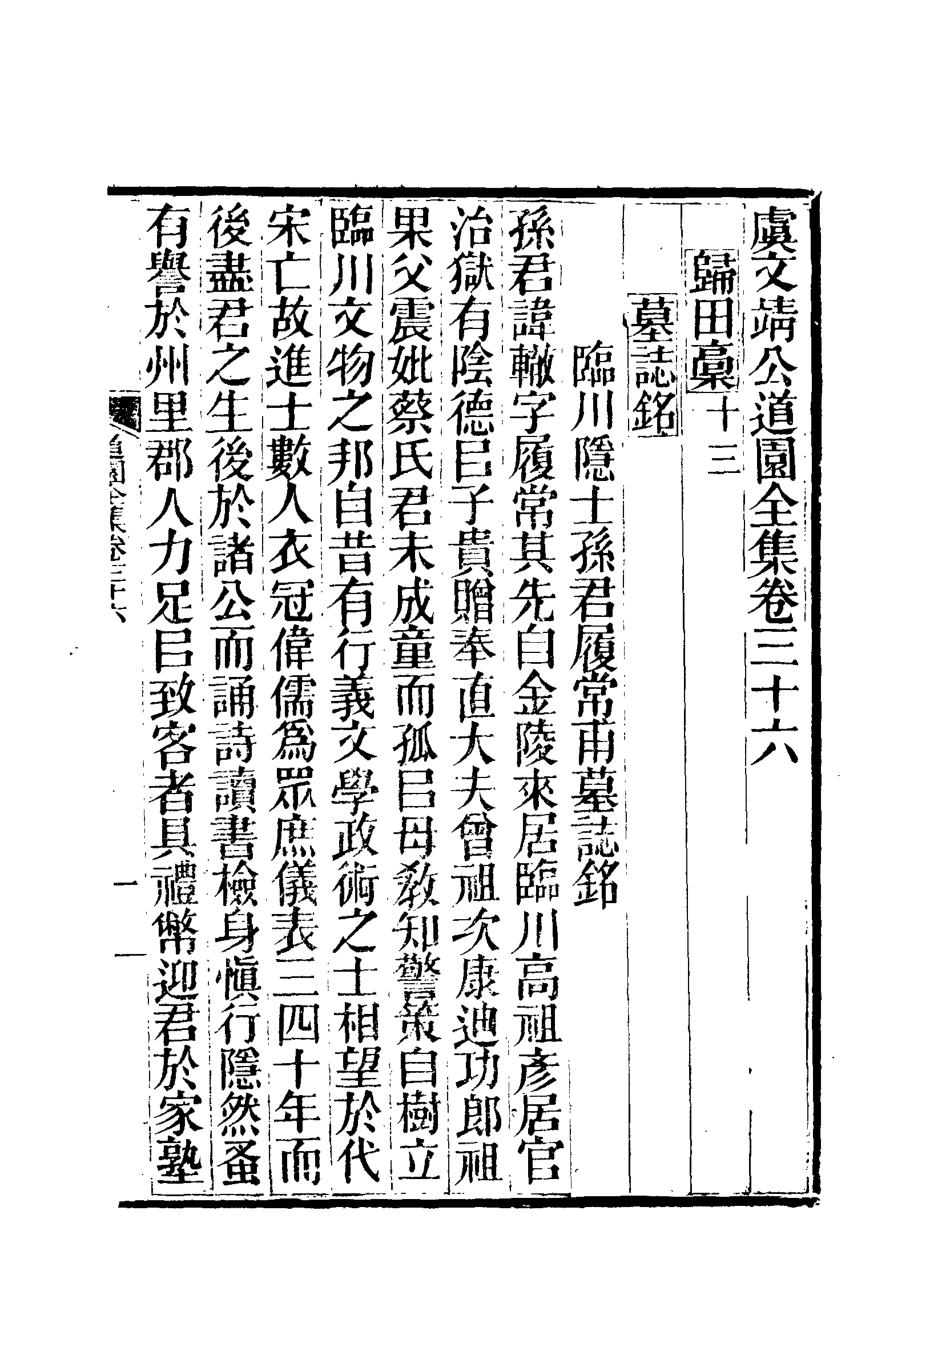 虞文靖公道園全集卷三十六
歸田稾十三
墓誌銘
臨川隱士孫君履常甫墓誌銘
孫君諱轍字履常其先自金陵來居臨川高祖彥居官
治獄有陰德㠯子貴贈奉直大夫曾祖次康迪功郎祖
果父震妣蔡氏君未成童而孤㠯母敎知警策自樹立
臨川文物之邦自昔有行義文學政術之士相望於代
宋亡故進士數人衣冠偉儒爲眾庶儀表三四十年而
後盡君之生後於諸公而誦詩讀書檢身愼行隱然蚤
有譽於州里郡人力足㠯致客者具禮幣迎君於家塾
道園全集卷三十六
一